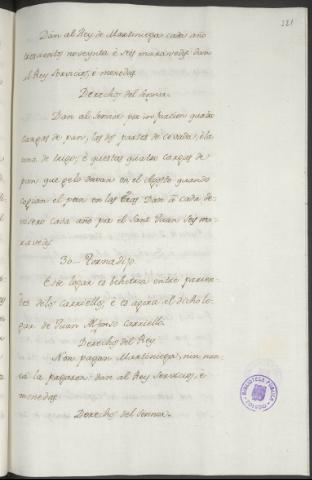 321
Dan al Rey de Martiniega cada año
trescientos noveynta è seis maravedis: dan
al Rey servicios, e monedas
Derechos del Sennor.
Dan al Sennor por infurcion quatro
cargas de pan, las dos partes de cevada, è la
una de trigo; è questas quatro cargas de
pan que gelo davan en el Agosto quando
cogian el pan en las Eras. Dan à cada de-
visero cada año por el Sant Juan seys ma-
ravedis
30 - Tornadijo
Este logar es behetria entre parien-
tes delos Carriellos; è es agora el dicho lo-
gar de Juan Alfonso Carriello
Derechos del Rey
Non pagan Martiniega, nin nun-
ca la pagaron: dan al Rey servicios, è
monedas
Derechos del Sennor.
BIBLIOTECA PUBLICA